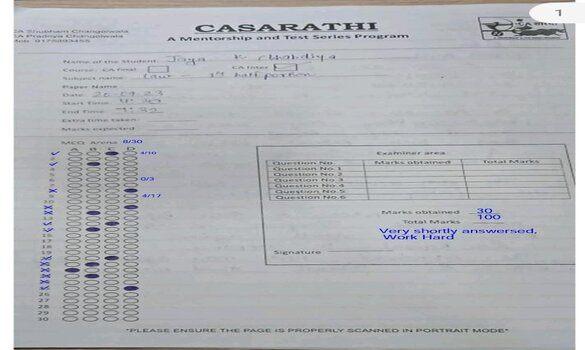 1
CASARATHI
A Mentorship and Test Series Program
CA Shubham Changoiwala
CA Pradnya Changoiwala
Mob: 9175393455
Name of the Student: Jaya K Chandiya
Course: CA final CA Inter
Subject name: Law 1st half portion
Paper Name
Date:
Start Time:
End Time:
Extra time taken:
Marks expected
MCQ Arena 8/30
A B C D
4/10
0/3
4/17
16
17
18
19
26
27
28
29
30
Examiner area
Question No. Marks obtained Total Marks
Question No.1
Question No.2
Question No.3
Question No.4
Question No.5
Question No.6
Marks obtained 30
Total Marks 100
Very shortly answersed,
Work Hard
Signature
"PLEASE ENSURE THE PAGE IS PROPERLY SCANNED IN PORTRAIT MODE"